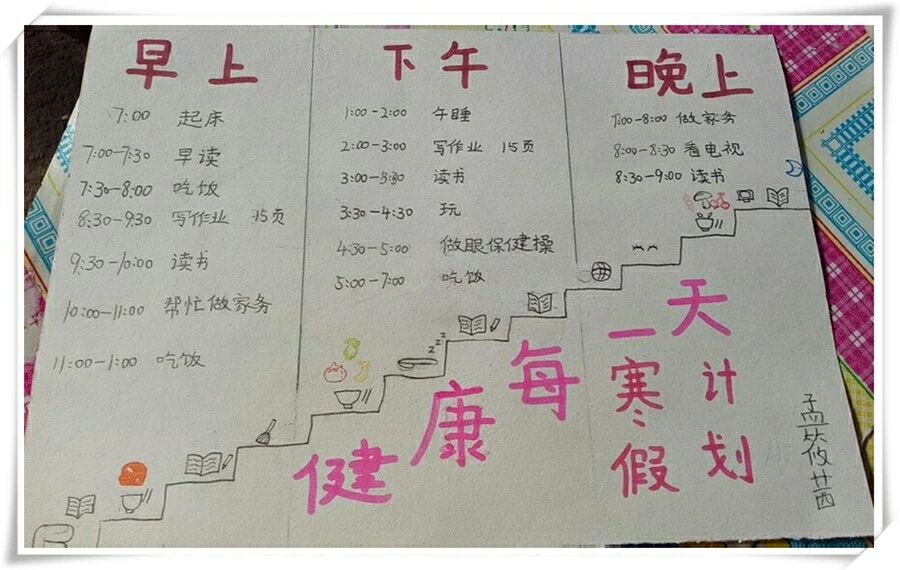 早上
7:00 起床
7:00-7:30 早读
7:30-8:00 吃饭
8:30-9:30 写作业 15页
9:30-10:00 读书
10:00-11:00 帮忙做家务
11:00-1:00 吃饭
下午
1:00-2:00 午睡
2:00-3:00 写作业 15页
3:00-3:30 读书
3:30-4:30 玩
4:30-5:00 做眼保健操
5:00-7:00 吃饭
晚上
7:00-8:00 做家务
8:00-8:30 看电视
8:30-9:00 读书
zzz
健康每一天
寒假计划
孟筱茜